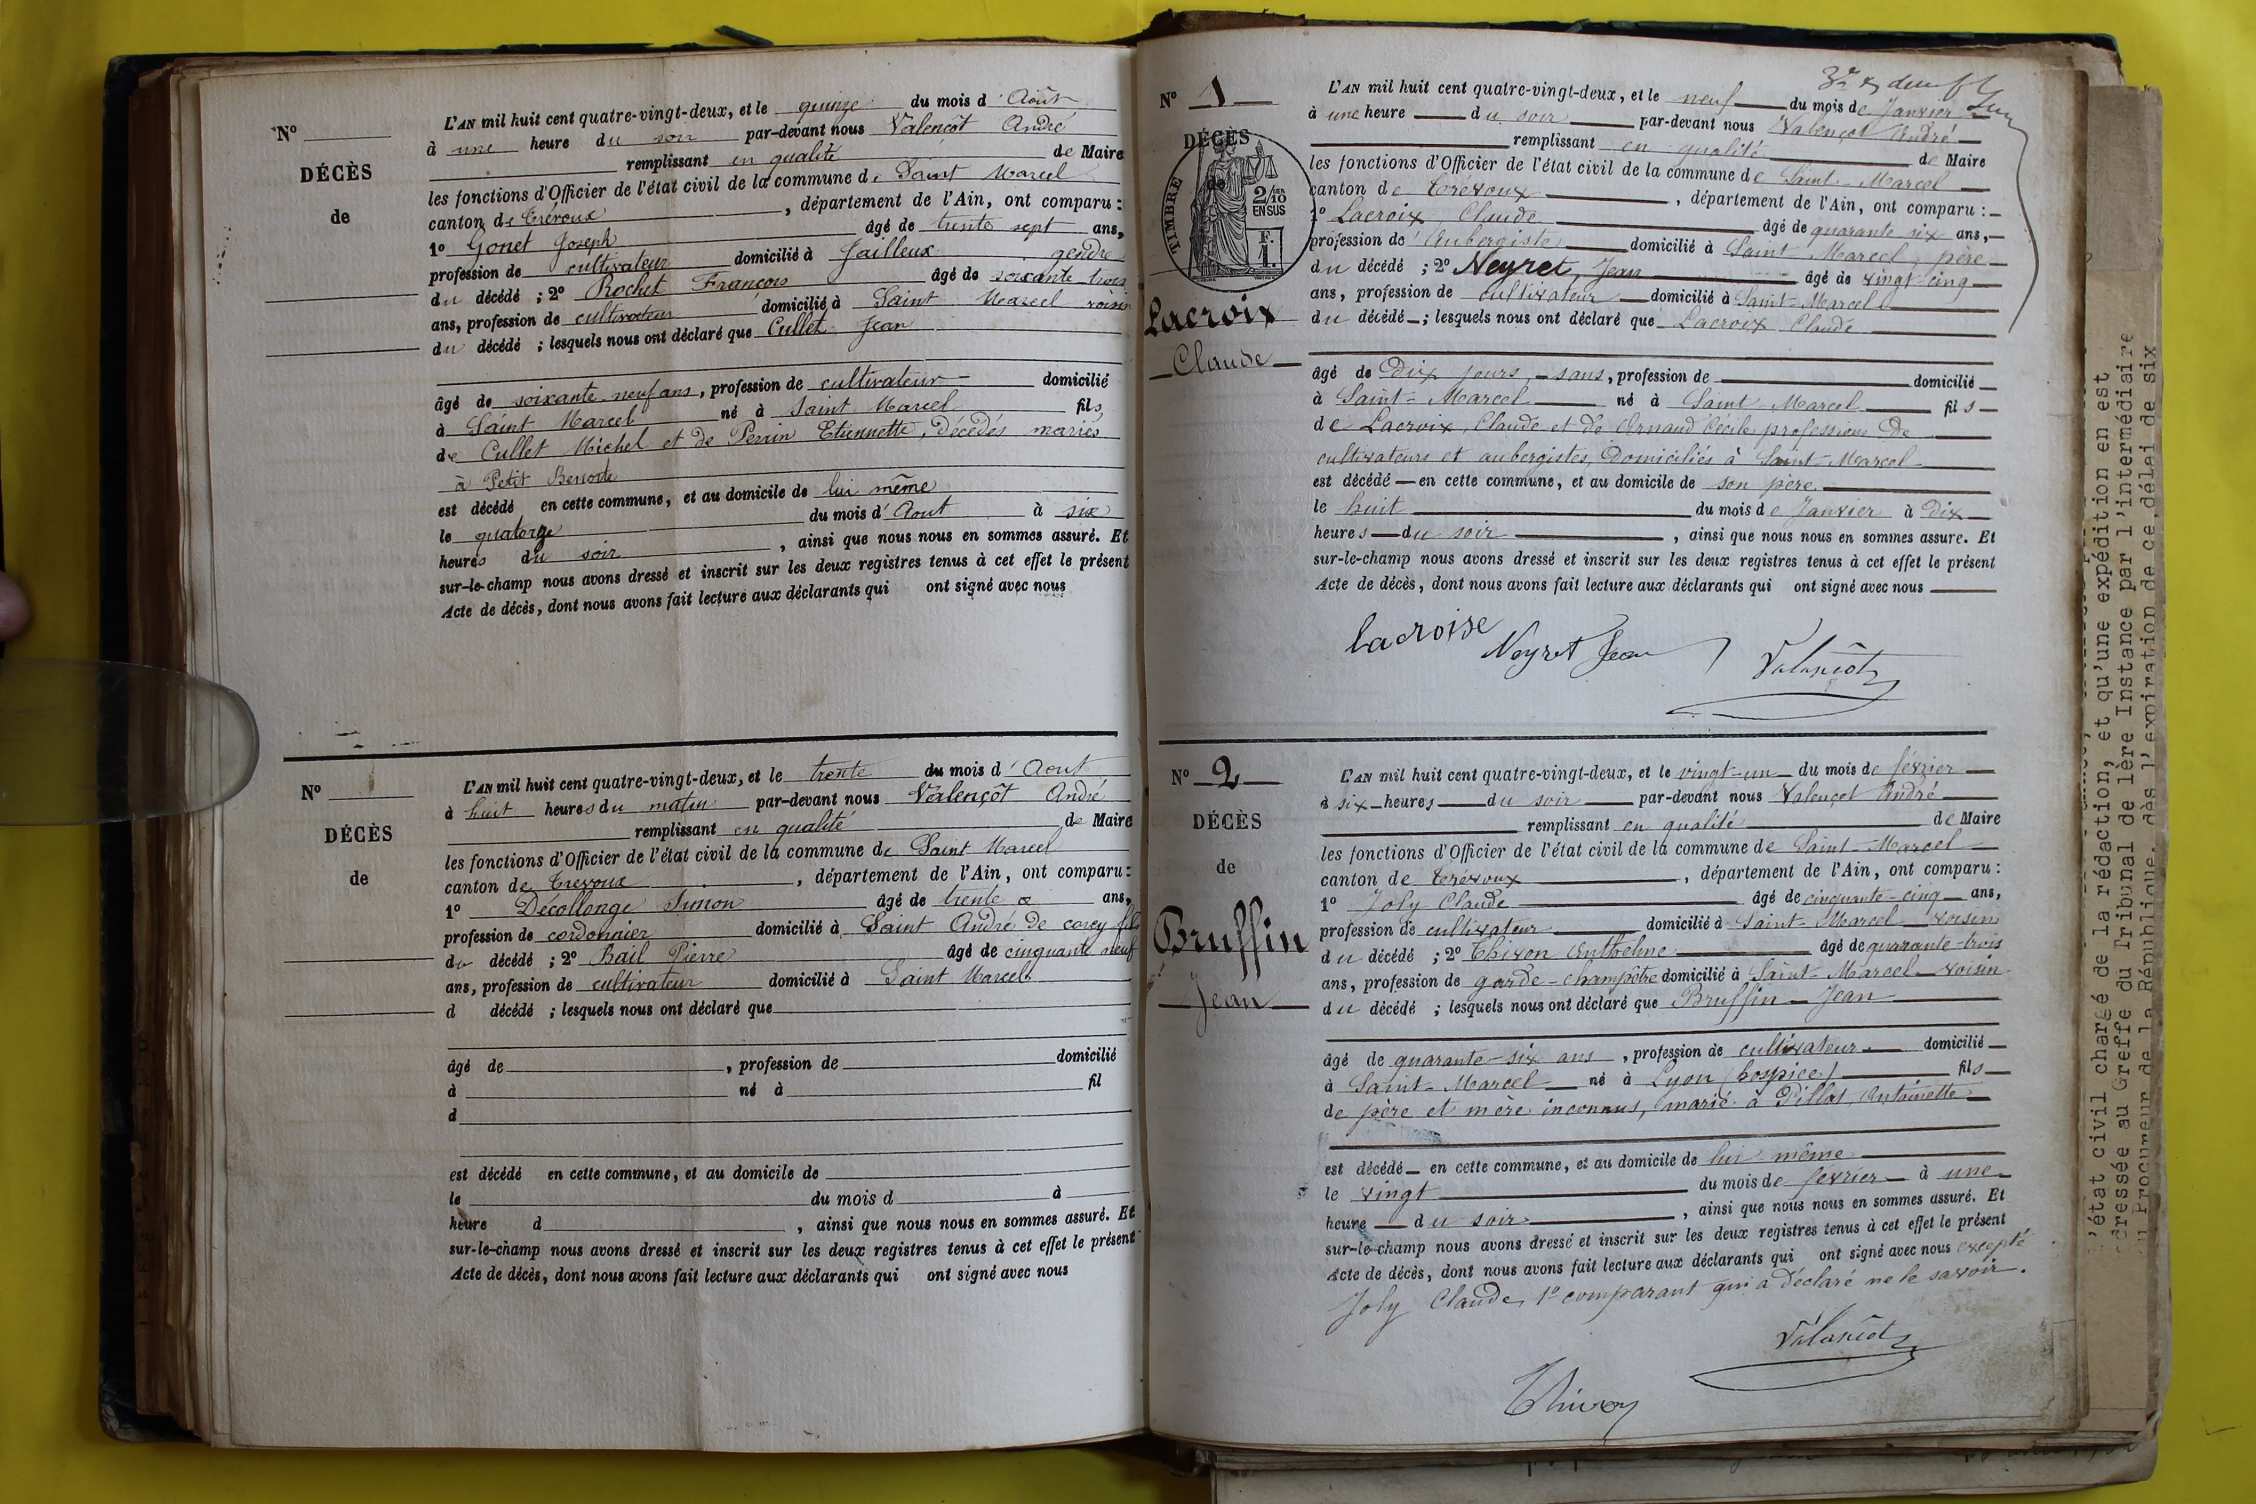 N°
DÉCÈS
de
L'AN mil huit cent quatre-vingt-deux, et le quinze du mois d'Août
à une heure du soir par-devant nous Valençôt André
remplissant en qualité de Maire
les fonctions d'Officier de l'état civil de la commune de Saint Marcel
canton de Trévoux, département de l'Ain, ont comparu :
1° Gonet Joseph âgé de trente sept ans,
profession de cultivateur domicilié à Jailleux gendre
du décédé ; 2° Rochet François âgé de soixante trois
ans, profession de cultivateur domicilié à Saint Marcel voisin
du décédé ; lesquels nous ont déclaré que Cullet Jean
âgé de soixante neuf ans, profession de cultivateur domicilié
à Saint Marcel né à Saint Marcel fils
de Cullet Michel et de Perrin Etiennette, décédés mariés
à Petit Benoite
est décédé en cette commune, et au domicile de lui même
le quatorze du mois d'Aout à six
heures du soir, ainsi que nous nous en sommes assuré. Et
sur-le-champ nous avons dressé et inscrit sur les deux registres tenus à cet effet le présent
Acte de décès, dont nous avons fait lecture aux déclarants qui ont signé avec nous
N°
DÉCÈS
de
L'AN mil huit cent quatre-vingt-deux, et le trente du mois d'Aout
à huit heures du matin par-devant nous Valençôt André
remplissant en qualité de Maire
les fonctions d'Officier de l'état civil de la commune de Saint Marcel
canton de Trevoux, département de l'Ain, ont comparu :
1° Décollonge Simon âgé de trente ans,
profession de cordonnier domicilié à Saint André de corcy fils
du décédé ; 2° Bail Pierre âgé de cinquante neuf
ans, profession de cultivateur domicilié à Saint Marcel
d décédé ; lesquels nous ont déclaré que
âgé de , profession de domicilié
à né à fil
d
est décédé en cette commune, et au domicile de
le du mois d à
heure d , ainsi que nous nous en sommes assuré. Et
sur-le-champ nous avons dressé et inscrit sur les deux registres tenus à cet effet le présent
Acte de décès, dont nous avons fait lecture aux déclarants qui ont signé avec nous
N° 1
DÉCÈS
de
TIMBRE
2/10 EN SUS
F. 1.
Lacroix
Claude
L'AN mil huit cent quatre-vingt-deux, et le neuf du mois de Janvier
à une heure du soir par-devant nous Valençot André
remplissant en qualité de Maire
les fonctions d'Officier de l'état civil de la commune de Saint-Marcel
canton de Trévoux, département de l'Ain, ont comparu :
1° Lacroix, Claude âgé de quarante six ans,
profession de Aubergiste domicilié à Saint-Marcel, père
du décédé ; 2° Neyret, Jean âgé de vingt-cinq
ans, profession de cultivateur domicilié à Saint-Marcel
du décédé ; lesquels nous ont déclaré que Lacroix Claude
âgé de Dix jours, sans, profession de domicilié
à Saint-Marcel né à Saint-Marcel fils
de Lacroix, Claude et de Arnaud Cécile profession de
cultivateurs et aubergistes, Domiciliés à Saint-Marcel
est décédé en cette commune, et au domicile de son père
le huit du mois de Janvier à Dix
heures du soir, ainsi que nous nous en sommes assure. Et
sur-le-champ nous avons dressé et inscrit sur les deux registres tenus à cet effet le présent
Acte de décès, dont nous avons fait lecture aux déclarants qui ont signé avec nous
lacroise Neyret Jean Valançôt
N° 2
DÉCÈS
de
Bruffin
Jean
L'AN mil huit cent quatre-vingt-deux, et le vingt-un du mois de février
à six heures du soir par-devant nous Valençot André
remplissant en qualité de Maire
les fonctions d'Officier de l'état civil de la commune de Saint-Marcel
canton de Trévoux, département de l'Ain, ont comparu :
1° Joly Claude âgé de cinquante-cinq ans,
profession de cultivateur domicilié à Saint-Marcel voisin
du décédé ; 2° Thivon Anthelme âgé de quarante-trois
ans, profession de garde-champêtre domicilié à Saint-Marcel voisin
du décédé ; lesquels nous ont déclaré que Bruffin Jean
âgé de quarante-six ans, profession de cultivateur domicilié
à Saint-Marcel né à Lyon (hospice) fils
de père et mère inconnus, marié à Pillat, Antoinette
est décédé en cette commune, et au domicile de lui même
le vingt du mois de fevrier à une
heure du soir, ainsi que nous nous en sommes assuré. Et
sur-le-champ nous avons dressé et inscrit sur les deux registres tenus à cet effet le présent
Acte de décès, dont nous avons fait lecture aux déclarants qui ont signé avec nous excepté
Joly Claude, 1° comparant qui a déclaré ne le savoir.
Valançôt
Thivon
'état civil chargé de la rédaction, et qu'une expédition en est
dressée au Greffe du Tribunal de 1ère Instance par l'intermédiaire
u Procureur de la République, dès l'expiration de ce délai de six